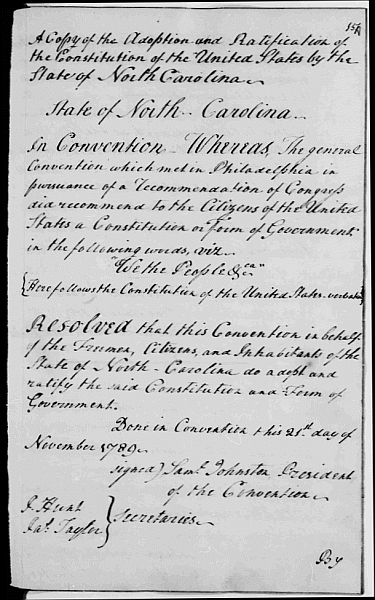 A Copy of the Adoption and Ratification of
the Constitution of the United States by the
State of North Carolina
State of North Carolina
In Convention Whereas, The general
Convention which met in Philadelphia in
pursuance of a recommendation of Congress
did recommend to the Citizens of the United
States a Constitution or form of Government
in the following words, viz.
"We the People &ca"
(Here follows the Constitution of the United States, verbatim)
Resolved that this Convention in behalf
of the Freemen, Citizens, and Inhabitants of the
State of North-Carolina do adopt and
ratify the said Constitution and Form of
Government.
Done in Convention this 21st day of
November 1789.
signed) Saml. Johnston, President
of the Convention
J. Hunt
Jas. Taylor } Secretaries
By